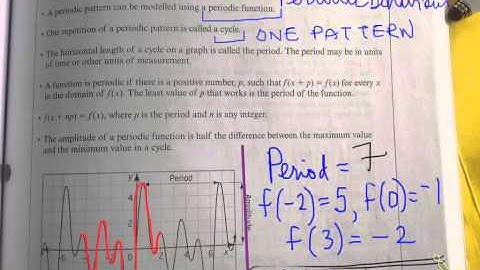 • A periodic pattern can be modelled using a periodic function.
• One repetition of a periodic pattern is called a cycle.
ONE PATTERN
• The horizontal length of a cycle on a graph is called the period. The period may be in units
of time or other units of measurement.
• A function is periodic if there is a positive number, p, such that f(x + p) = f(x) for every x
in the domain of f(x). The least value of p that works is the period of the function.
• f(x + np) = f(x), where p is the period and n is any integer.
• The amplitude of a periodic function is half the difference between the maximum value
and the minimum value in a cycle.
y
Period
4
2
0
x
Period = 7
f(-2)=5, f(0)=-1
f(3) = -2